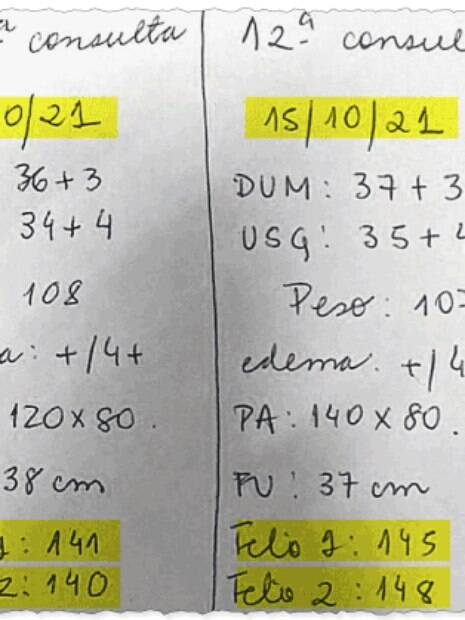 ª consulta
0/21
36+3
34+4
108
a: +/4+
120x80.
38 cm
1: 141
2: 140
12ª consul
15/10/21
DUM: 37+3
USG: 35+4
Peso: 107
edema: +/4
PA: 140x80.
FU: 37 cm
Feto 1: 145
Feto 2: 148